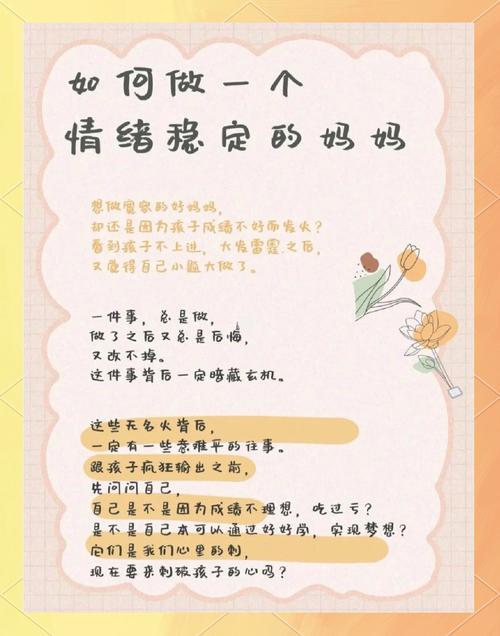 如何做一个
情绪稳定的妈妈
想做宽容的好妈妈,
却还是因为孩子成绩不好而发火?
看到孩子不上进,大发雷霆之后,
又觉得自己小题大做了。
一件事,总是做,
做了之后又总是后悔,
又改不掉。
这件事背后一定暗藏玄机。
这些无名火背后,
一定有一些意难平的往事。
跟孩子疯狂输出之前,
先问问自己,
自己是不是因为成绩不理想,吃过亏?
是不是自己本可以通过好好学,实现梦想?
它们是我们心里的刺,
现在要来刺破孩子的心吗?